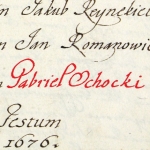 n Jakub Reynekie
n Jan Romanowic
n Gabriel Ochocki
Festum
1676.